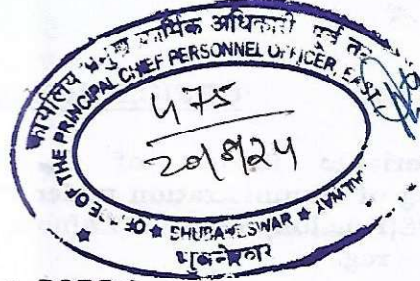 कार्यालय प्रमुख कार्मिक अधिकारी पूर्व त
OFFICE OF THE PRINCIPAL CHIEF PERSONNEL OFFICER, EAST
RAILWAY ★ BHUBANESWAR ★
475
20/8/24
भुवनेश्वर